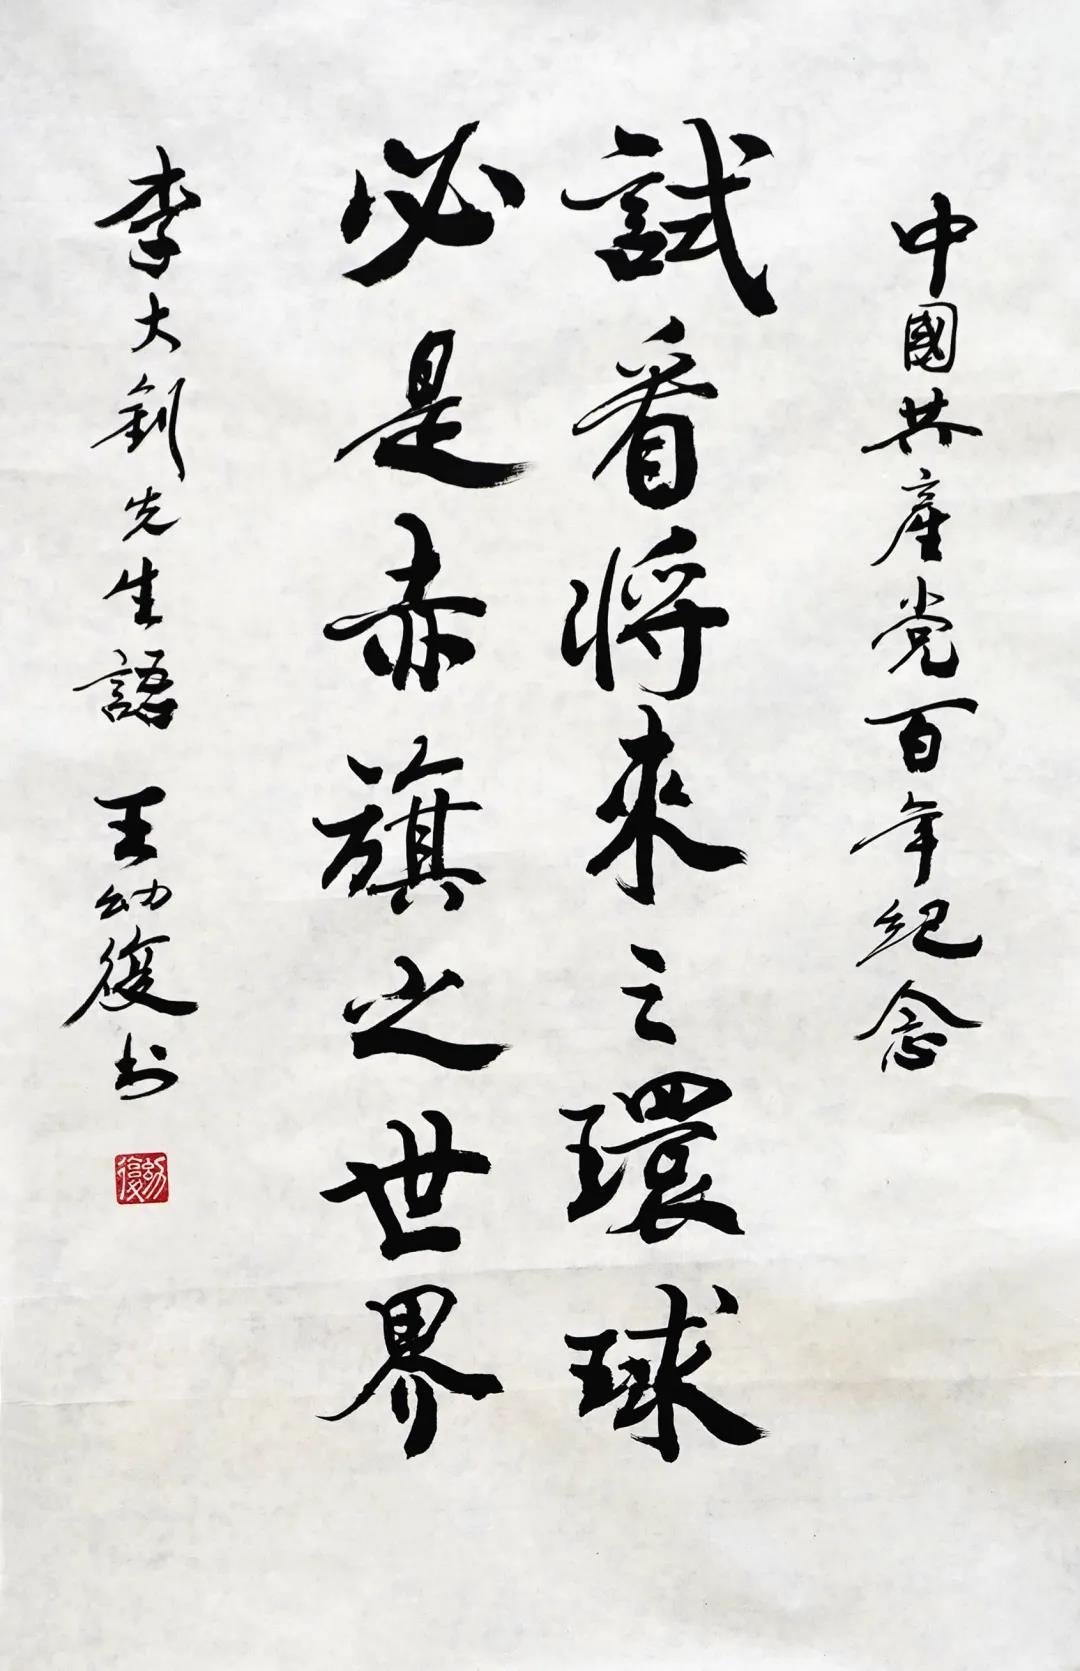 中國共產党百年纪念
試看將來之環球
必是赤旗之世界
李大釗先生語 王幼復书
幼復